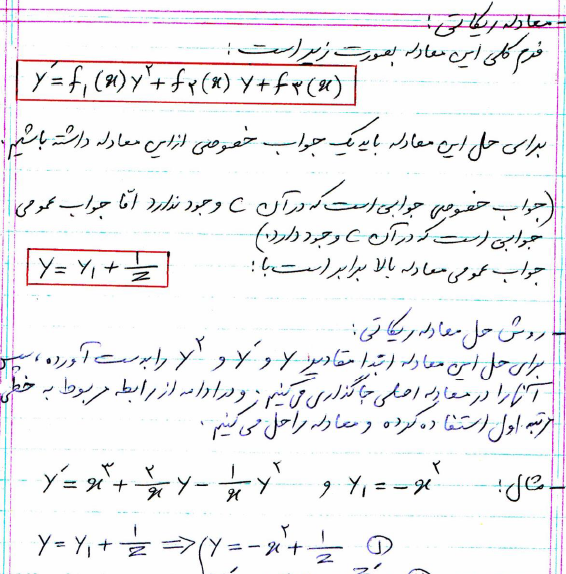 - معادله ریکاتی:
فرم کلی این معادله بصورت زیر است:
y′ = f₁(x) y² + f₂(x) y + f₃(x)
برای حل این معادله باید یک جواب خصوصی از این معادله داشته باشیم.
(جواب خصوصی جوابی است که در آن C وجود ندارد اما جواب عمومی
جوابی است که در آن C وجود دارد.)
جواب عمومی معادله بالا برابر است با:
y = y₁ + 1/z
- روش حل معادله ریکاتی:
برای حل این معادله ابتدا مقادیر y و y′ و y² را بدست آورده، سپس
آنها را در معادله اصلی جاگذاری می‌کنیم. و در ادامه از رابطه مربوط به خطی
مرتبه اول استفاده کرده و معادله را حل می‌کنیم.
- مثال: y′ = x³ + ۲/x y - 1/x y² و y₁ = -x²
y = y₁ + 1/z ⇒ (y = -x² + 1/z ①